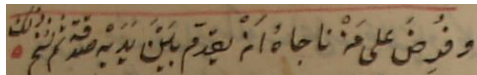 وفُرِضَ على مَنْ ناجاهُ اَنْ يقدم بَيْنَ يَدَيْهِ صدقة ثم نُسِخَ ذلك